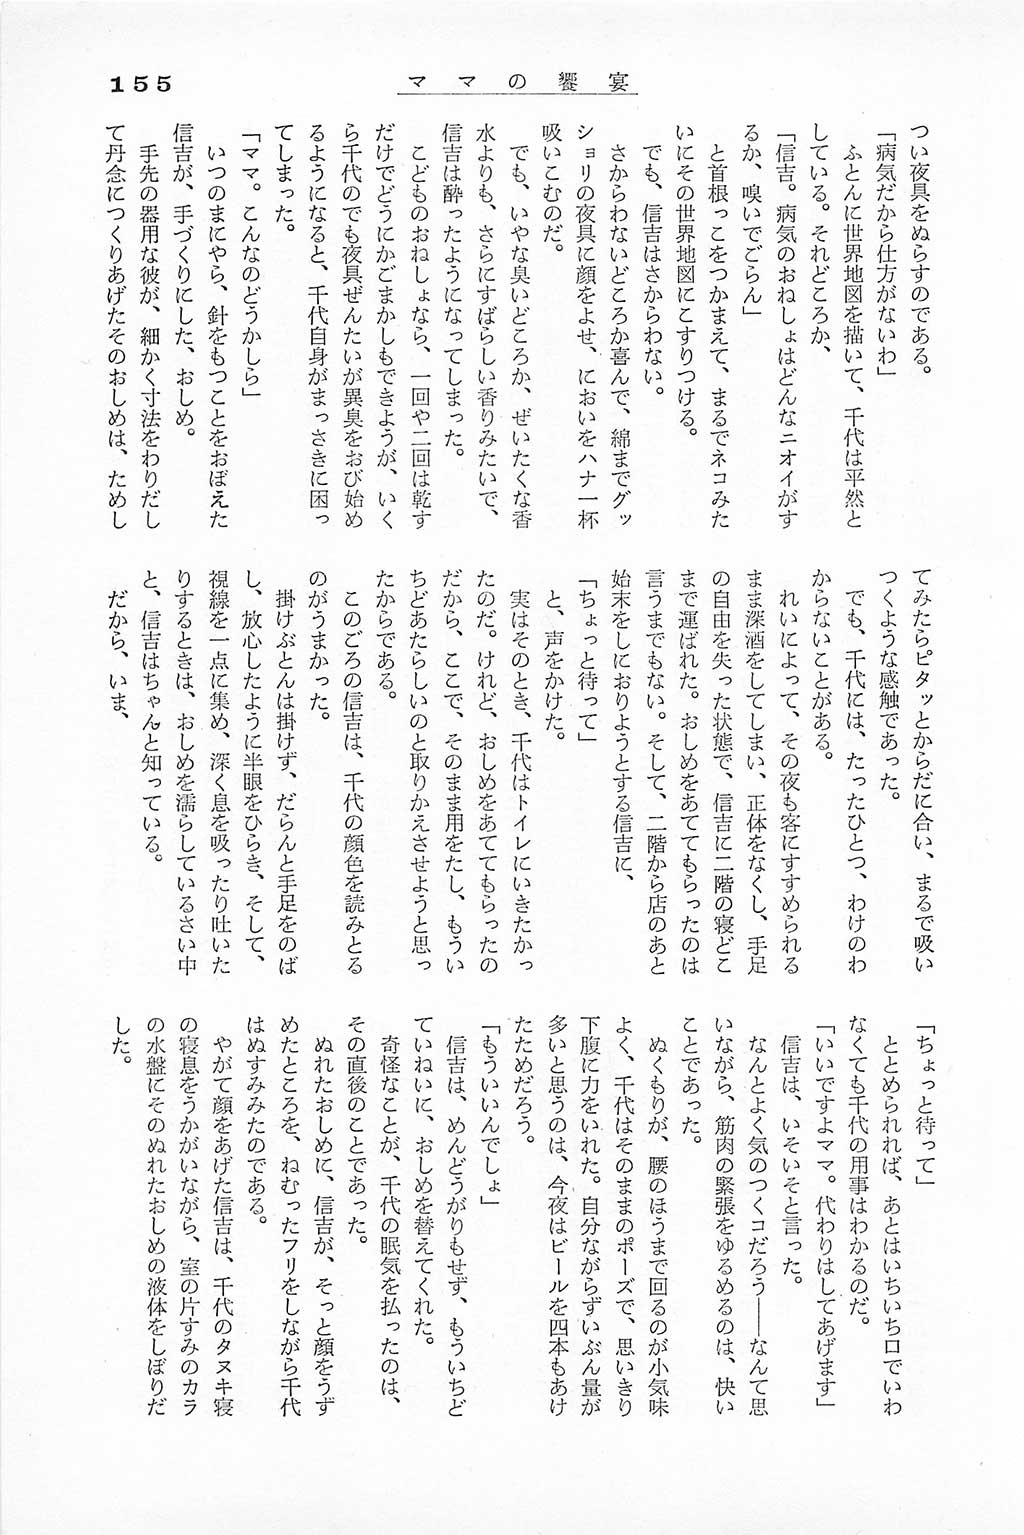 155
ママの饗宴
つい夜具をぬらすのである。
「病気だから仕方がないわ」
ふとんに世界地図を描いて、千代は平然と
している。それどころか、
「信吉。病気のおねしょはどんなニオイがす
るか、嗅いでごらん」
と首根っこをつかまえて、まるでネコみた
いにその世界地図にこすりつける。
でも、信吉はさからわない。
さからわないどころか喜んで、綿までグッ
ショリの夜具に顔をよせ、においをハナ一杯
吸いこむのだ。
でも、いやな臭いどころか、ぜいたくな香
水よりも、さらにすばらしい香りみたいで、
信吉は酔ったようになってしまった。
こどものおねしょなら、一回や二回は乾す
だけでどうにかごまかしもできようが、いく
ら千代のでも夜具ぜんたいが異臭をおび始め
るようになると、千代自身がまっさきに困っ
てしまった。
「ママ。こんなのどうかしら」
いつのまにやら、針をもつことをおぼえた
信吉が、手づくりにした、おしめ。
手先の器用な彼が、細かく寸法をわりだし
て丹念につくりあげたそのおしめは、ためし
てみたらピタッとからだに合い、まるで吸い
つくような感触であった。
でも、千代には、たったひとつ、わけのわ
からないことがある。
れいによって、その夜も客にすすめられる
まま深酒をしてしまい、正体をなくし、手足
の自由を失った状態で、信吉に二階の寝どこ
まで運ばれた。おしめをあててもらったのは
言うまでもない。そして、二階から店のあと
始末をしにおりようとする信吉に、
「ちょっと待って」
と、声をかけた。
実はそのとき、千代はトイレにいきたかっ
たのだ。けれど、おしめをあててもらったの
だから、ここで、そのまま用をたし、もうい
ちどあたらしいのと取りかえさせようと思っ
たからである。
このごろの信吉は、千代の顔色を読みとる
のがうまかった。
掛けぶとんは掛けず、だらんと手足をのば
し、放心したように半眼をひらき、そして、
視線を一点に集め、深く息を吸ったり吐いた
りするときは、おしめを濡らしているさい中
と、信吉はちゃんと知っている。
だから、いま、
「ちょっと待って」
ととめられれば、あとはいちいち口でいわ
なくても千代の用事はわかるのだ。
「いいですよママ。代わりはしてあげます」
信吉は、いそいそと言った。
なんとよく気のつくコだろう――なんて思
いながら、筋肉の緊張をゆるめるのは、快い
ことであった。
ぬくもりが、腰のほうまで回るのが小気味
よく、千代はそのままのポーズで、思いきり
下腹に力をいれた。自分ながらずいぶん量が
多いと思うのは、今夜はビールを四本もあけ
たためだろう。
「もういいんでしょ」
信吉は、めんどうがりもせず、もういちど
ていねいに、おしめを替えてくれた。
奇怪なことが、千代の眠気を払ったのは、
その直後のことであった。
ぬれたおしめに、信吉が、そっと顔をうず
めたところを、ねむったフリをしながら千代
はぬすみみたのである。
やがて顔をあげた信吉は、千代のタヌキ寝
の寝息をうかがいながら、室の片すみのカラ
の水盤にそのぬれたおしめの液体をしぼりだ
した。